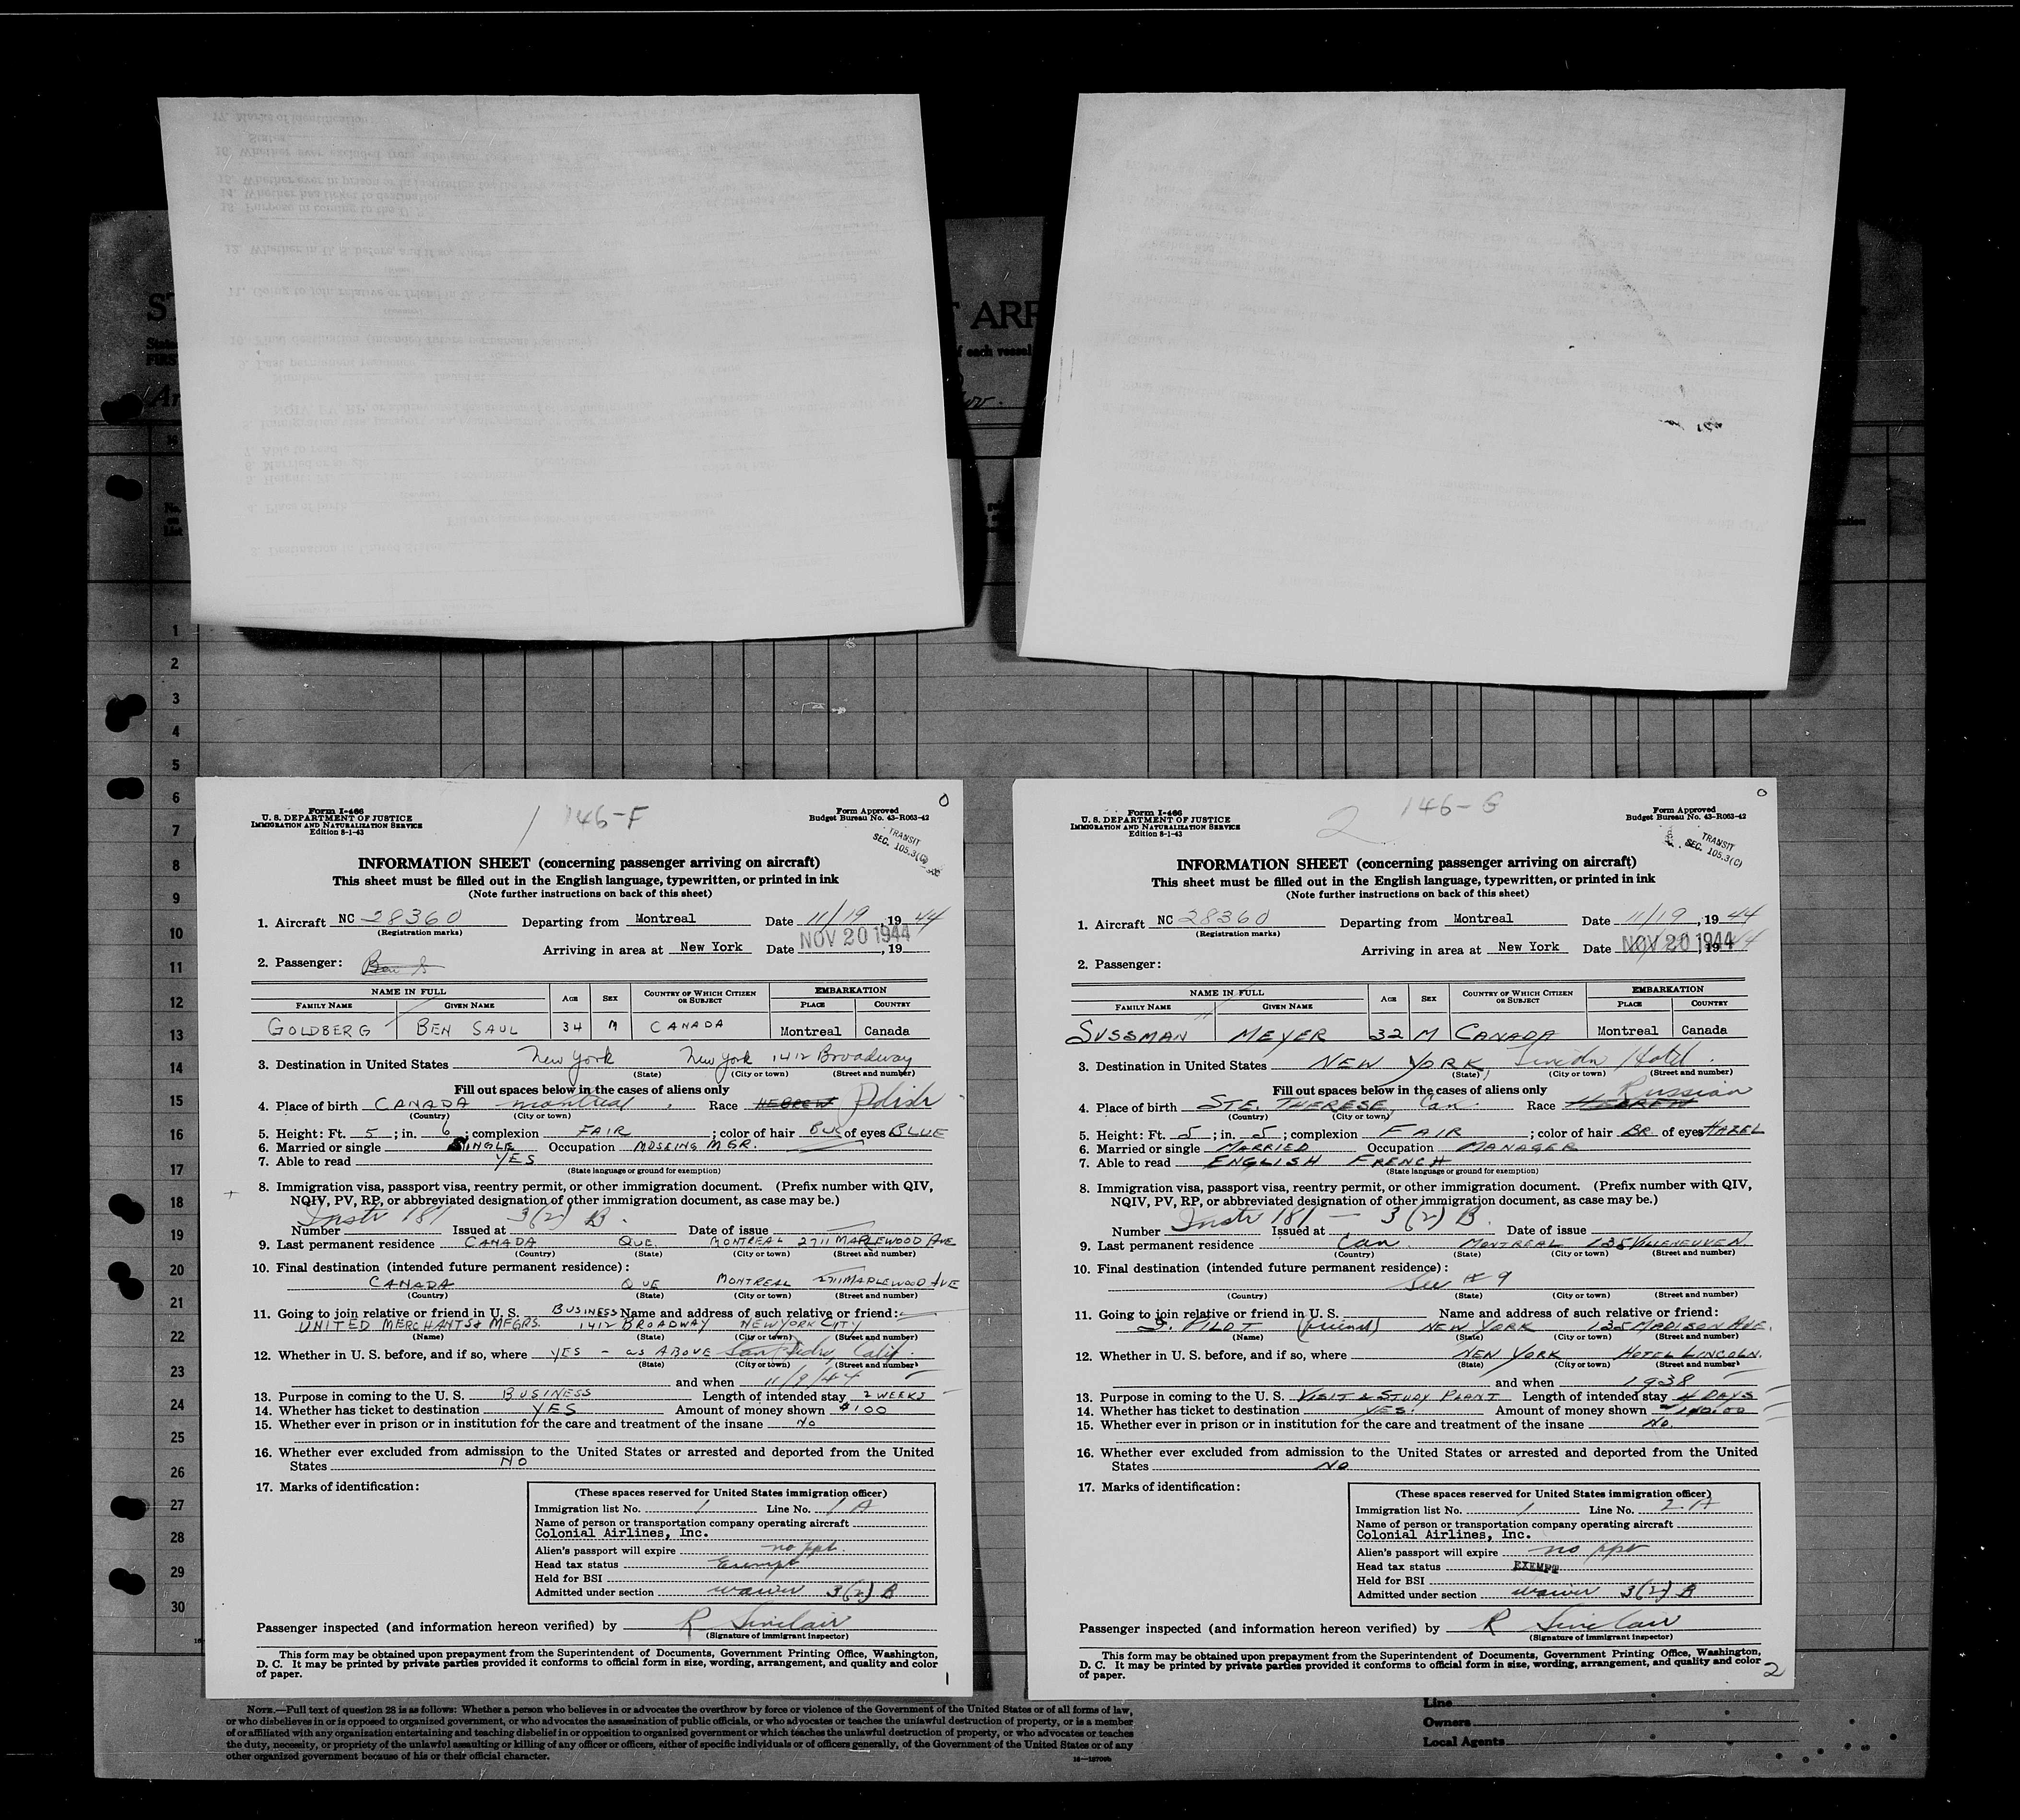 ST
T ARR
State
of each vessel
FIRST
Ar
Nov.
1
2
3
4
5
6
7
8
9
10
11
12
13
14
15
16
17
18
19
20
21
22
23
24
25
26
27
28
29
30
Form I-466
U. S. DEPARTMENT OF JUSTICE
IMMIGRATION AND NATURALIZATION SERVICE
Edition 8-1-43
1 146-F
Form Approved
Budget Bureau No. 43-R063-42
0
TRANSIT
SEC. 105.3(C)
INFORMATION SHEET (concerning passenger arriving on aircraft)
This sheet must be filled out in the English language, typewritten, or printed in ink
(Note further instructions on back of this sheet)
1. Aircraft NC 28360 Departing from Montreal Date 11/19, 1944
(Registration marks)
Arriving in area at New York Date NOV 20 1944, 19
2. Passenger: Ben S
NAME IN FULL AGE SEX COUNTRY OF WHICH CITIZEN OR SUBJECT EMBARKATION
FAMILY NAME GIVEN NAME PLACE COUNTRY
GOLDBERG BEN SAUL 34 M CANADA Montreal Canada
3. Destination in United States New York New York 1412 Broadway
(State) (City or town) (Street and number)
Fill out spaces below in the cases of aliens only
4. Place of birth CANADA Montreal Race HEBREW Polish
(Country) (City or town)
5. Height: Ft. 5; in. 6; complexion FAIR; color of hair BLK of eyes BLUE
6. Married or single SINGLE Occupation MGR.
7. Able to read YES
(State language or ground for exemption)
8. Immigration visa, passport visa, reentry permit, or other immigration document. (Prefix number with QIV,
NQIV, PV, RP, or abbreviated designation of other immigration document, as case may be.)
Instr 181 3(2) B.
Number Issued at Date of issue
9. Last permanent residence CANADA QUE. MONTREAL 2711 MAPLEWOOD AVE
(Country) (State) (City or town) (Street and number)
10. Final destination (intended future permanent residence):
CANADA QUE MONTREAL 2711 MAPLEWOOD AVE
(Country) (State) (City or town) (Street and number)
11. Going to join relative or friend in U. S. BUSINESS Name and address of such relative or friend:
UNITED MERCHANTS & MFGRS. 1412 BROADWAY NEW YORK CITY
(Name) (State) (City or town) (Street and number)
12. Whether in U. S. before, and if so, where YES - as ABOVE San Pedro, Calif.
(State) (City or town) (Street and number)
and when 11/9/44
13. Purpose in coming to the U. S. BUSINESS Length of intended stay 2 WEEKS
14. Whether has ticket to destination YES Amount of money shown $100
15. Whether ever in prison or in institution for the care and treatment of the insane NO
16. Whether ever excluded from admission to the United States or arrested and deported from the United
States NO
17. Marks of identification:
(These spaces reserved for United States immigration officer)
Immigration list No. 1 Line No. 1 A
Name of person or transportation company operating aircraft
Colonial Airlines, Inc.
Alien's passport will expire no ppt.
Head tax status Exempt
Held for BSI
Admitted under section waiver 3(2) B
Passenger inspected (and information hereon verified) by R Sinclair
(Signature of immigrant inspector)
This form may be obtained upon prepayment from the Superintendent of Documents, Government Printing Office, Washington,
D. C. It may be printed by private parties provided it conforms to official form in size, wording, arrangement, and quality and color
of paper.
1
Form I-466
U. S. DEPARTMENT OF JUSTICE
IMMIGRATION AND NATURALIZATION SERVICE
Edition 8-1-43
2 146-G
Form Approved
Budget Bureau No. 43-R063-42
0
TRANSIT
SEC. 105.3(C)
INFORMATION SHEET (concerning passenger arriving on aircraft)
This sheet must be filled out in the English language, typewritten, or printed in ink
(Note further instructions on back of this sheet)
1. Aircraft NC 28360 Departing from Montreal Date 11/19, 1944
(Registration marks)
Arriving in area at New York Date NOV 20 1944, 1944
2. Passenger:
NAME IN FULL AGE SEX COUNTRY OF WHICH CITIZEN OR SUBJECT EMBARKATION
FAMILY NAME GIVEN NAME PLACE COUNTRY
SUSSMAN MEYER 32 M CANADA Montreal Canada
3. Destination in United States NEW YORK, Lincoln Hotel.
(State) (City or town) (Street and number)
Fill out spaces below in the cases of aliens only
4. Place of birth STE. THERESE, Can. Race HEBREW Russian
(Country) (City or town)
5. Height: Ft. 5; in. 5; complexion FAIR; color of hair BR. of eyes HAZEL
6. Married or single MARRIED Occupation MANAGER
7. Able to read ENGLISH FRENCH
(State language or ground for exemption)
8. Immigration visa, passport visa, reentry permit, or other immigration document. (Prefix number with QIV,
NQIV, PV, RP, or abbreviated designation of other immigration document, as case may be.)
Instr 181 — 3(2) B.
Number Issued at Date of issue
9. Last permanent residence Can. MONTREAL 135 VILLENEUVE N.
(Country) (State) (City or town) (Street and number)
10. Final destination (intended future permanent residence):
See # 9
(Country) (State) (City or town) (Street and number)
11. Going to join relative or friend in U. S. Name and address of such relative or friend:
PILOT (friend) NEW YORK 135 MADISON AVE.
(Name) (State) (City or town) (Street and number)
12. Whether in U. S. before, and if so, where NEW YORK HOTEL LINCOLN.
(State) (City or town) (Street and number)
and when 1938
13. Purpose in coming to the U. S. VISIT & STUDY PLANT Length of intended stay 4 DAYS
14. Whether has ticket to destination YES. Amount of money shown
15. Whether ever in prison or in institution for the care and treatment of the insane NO.
16. Whether ever excluded from admission to the United States or arrested and deported from the United
States NO
17. Marks of identification:
(These spaces reserved for United States immigration officer)
Immigration list No. 1 Line No. 2 A
Name of person or transportation company operating aircraft
Colonial Airlines, Inc.
Alien's passport will expire no ppt
Head tax status EXEMPT
Held for BSI
Admitted under section waiver 3(2) B
Passenger inspected (and information hereon verified) by R Sinclair
(Signature of immigrant inspector)
This form may be obtained upon prepayment from the Superintendent of Documents, Government Printing Office, Washington,
D. C. It may be printed by private parties provided it conforms to official form in size, wording, arrangement, and quality and color
of paper.
2
NOTE.—Full text of question 28 is as follows: Whether a person who believes in or advocates the overthrow by force or violence of the Government of the United States or of all forms of law,
or who disbelieves in or is opposed to organized government, or who advocates the assassination of public officials, or who advocates or teaches the unlawful destruction of property, or is a member
of or affiliated with any organization entertaining and teaching disbelief in or opposition to organized government or which teaches the unlawful destruction of property, or who advocates or teaches
the duty, necessity, or propriety of the unlawful assaulting or killing of any officer or officers, either of specific individuals or of officers generally, of the Government of the United States or of any
other organized government because of his or their official character.
Line
Owners
Local Agents